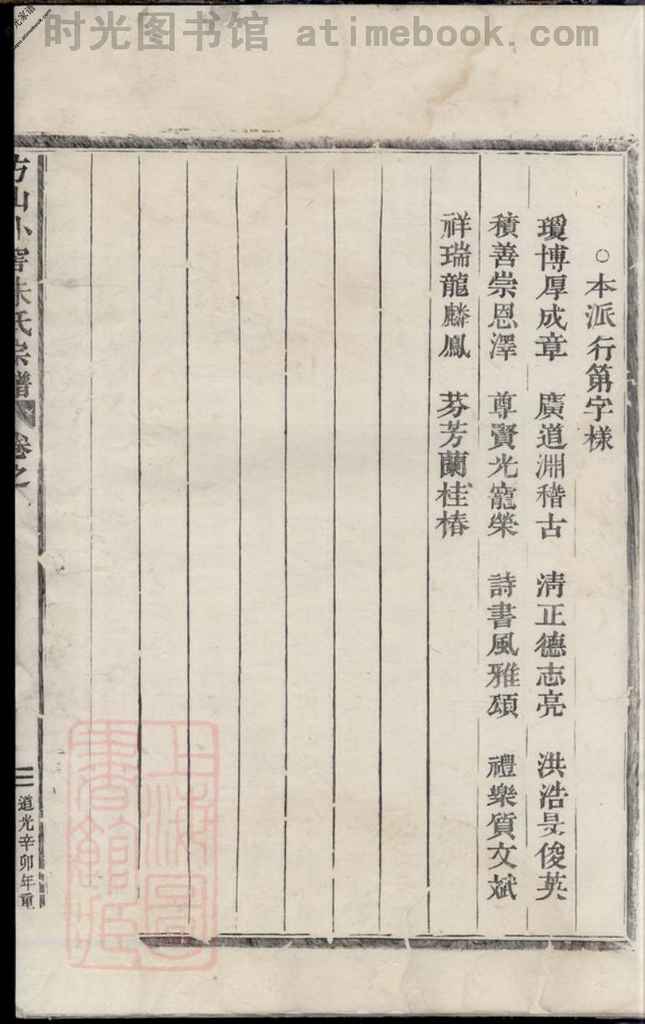 时光图书馆 atimebook.com
○本派行第字樣
瓊博厚成章 廣道淵稽古 清正德志亮 洪浩旻俊英
積善崇恩澤 尊賢光寵榮 詩書風雅頌 禮樂質文斌
祥瑞龍麟鳳 芬芳蘭桂椿
方山小窖朱氏宗譜 卷之
三
道光辛卯年重
上海圖書館藏